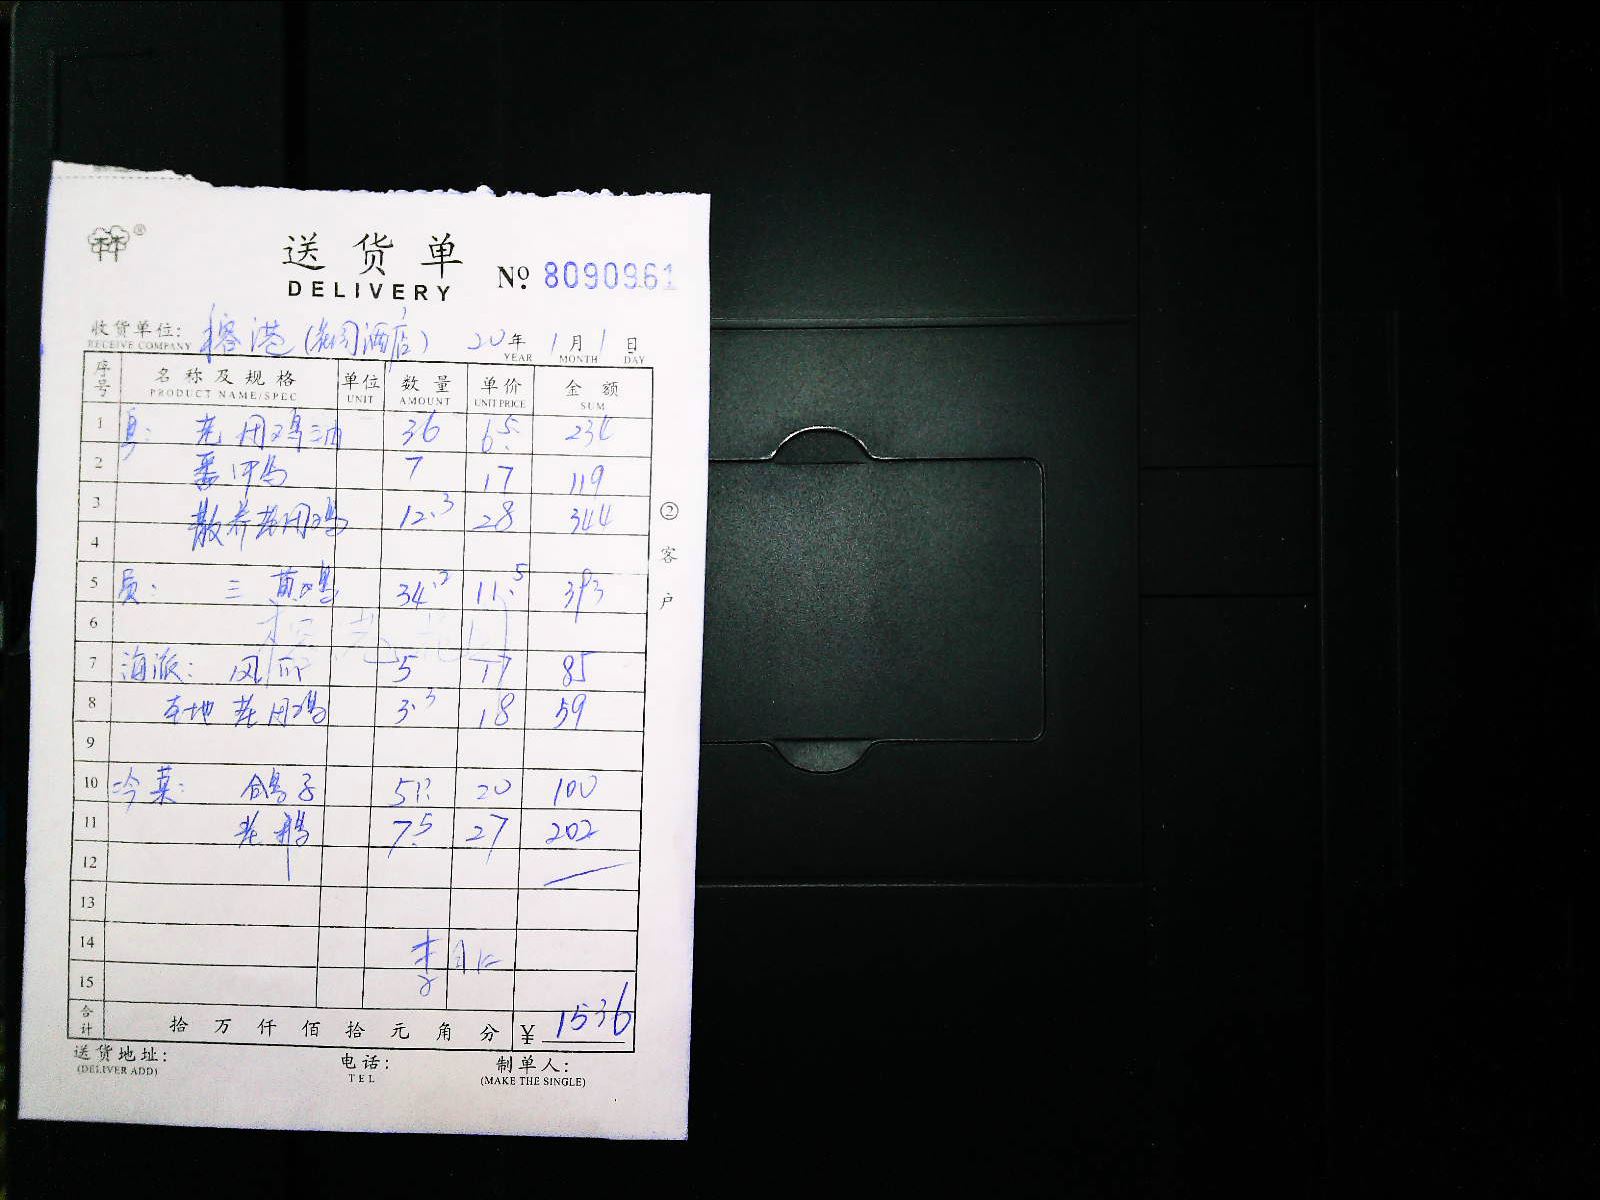 送货单
DELIVERY
№ 8090961
收货单位: 榕港(花园酒店) 20年 1月 1日
RECEIVE COMPANY YEAR MONTH DAY
序号 名称及规格 单位 数量 单价 金额
PRODUCT NAME/SPEC UNIT AMOUNT UNIT PRICE SUM
1 36 6.5 234
2 番鸭 7 17 119
3 散养老母鸡 12.3 28 344
4
5 员: 三黄鸡 34.2 11.5 393
6
7 海派: 风爪 5 17 85
8 本地老母鸡 3.3 18 59
9
10 冷菜: 鸽子 5只 20 100
11 老鹅 7.5 27 202
12
13
14
15
合计 拾万仟佰拾元角分 ¥ 1536
送货地址: 电话: 制单人:
(DELIVER ADD) TEL (MAKE THE SINGLE)
②客户